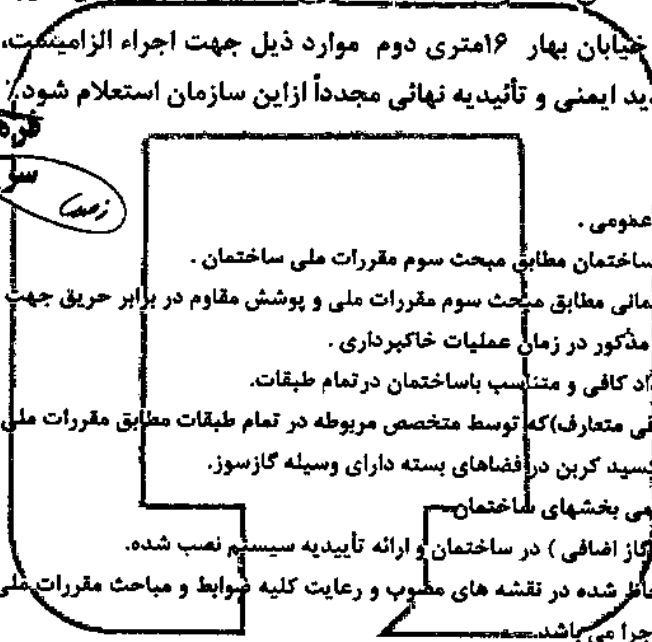 خیابان بهار ۱۶متری دوم موارد ذیل جهت اجراء الزامیست،
دید ایمنی و تأئیدیه نهائی مجدداً ازاین سازمان استعلام شود.٪
عمومی .
ساختمان مطابق مبحث سوم مقررات ملی ساختمان .
مانی مطابق مبحث سوم مقررات ملی و پوشش مقاوم در برابر حریق جهت
مذکور در زمان عملیات خاکبرداری .
اد کافی و متناسب باساختمان درتمام طبقات.
قی متعارف)که توسط متخصص مربوطه در تمام طبقات مطابق مقررات ملی
کسید کربن در فضاهای بسته دارای وسیله گازسوز.
می بخشهای ساختمان
گاز اضافی ) در ساختمان و ارائه تأییدیه سیستم نصب شده.
حاظ شده در نقشه های مصوب و رعایت کلیه ضوابط و مباحث مقررات ملی
جرا می باشد.